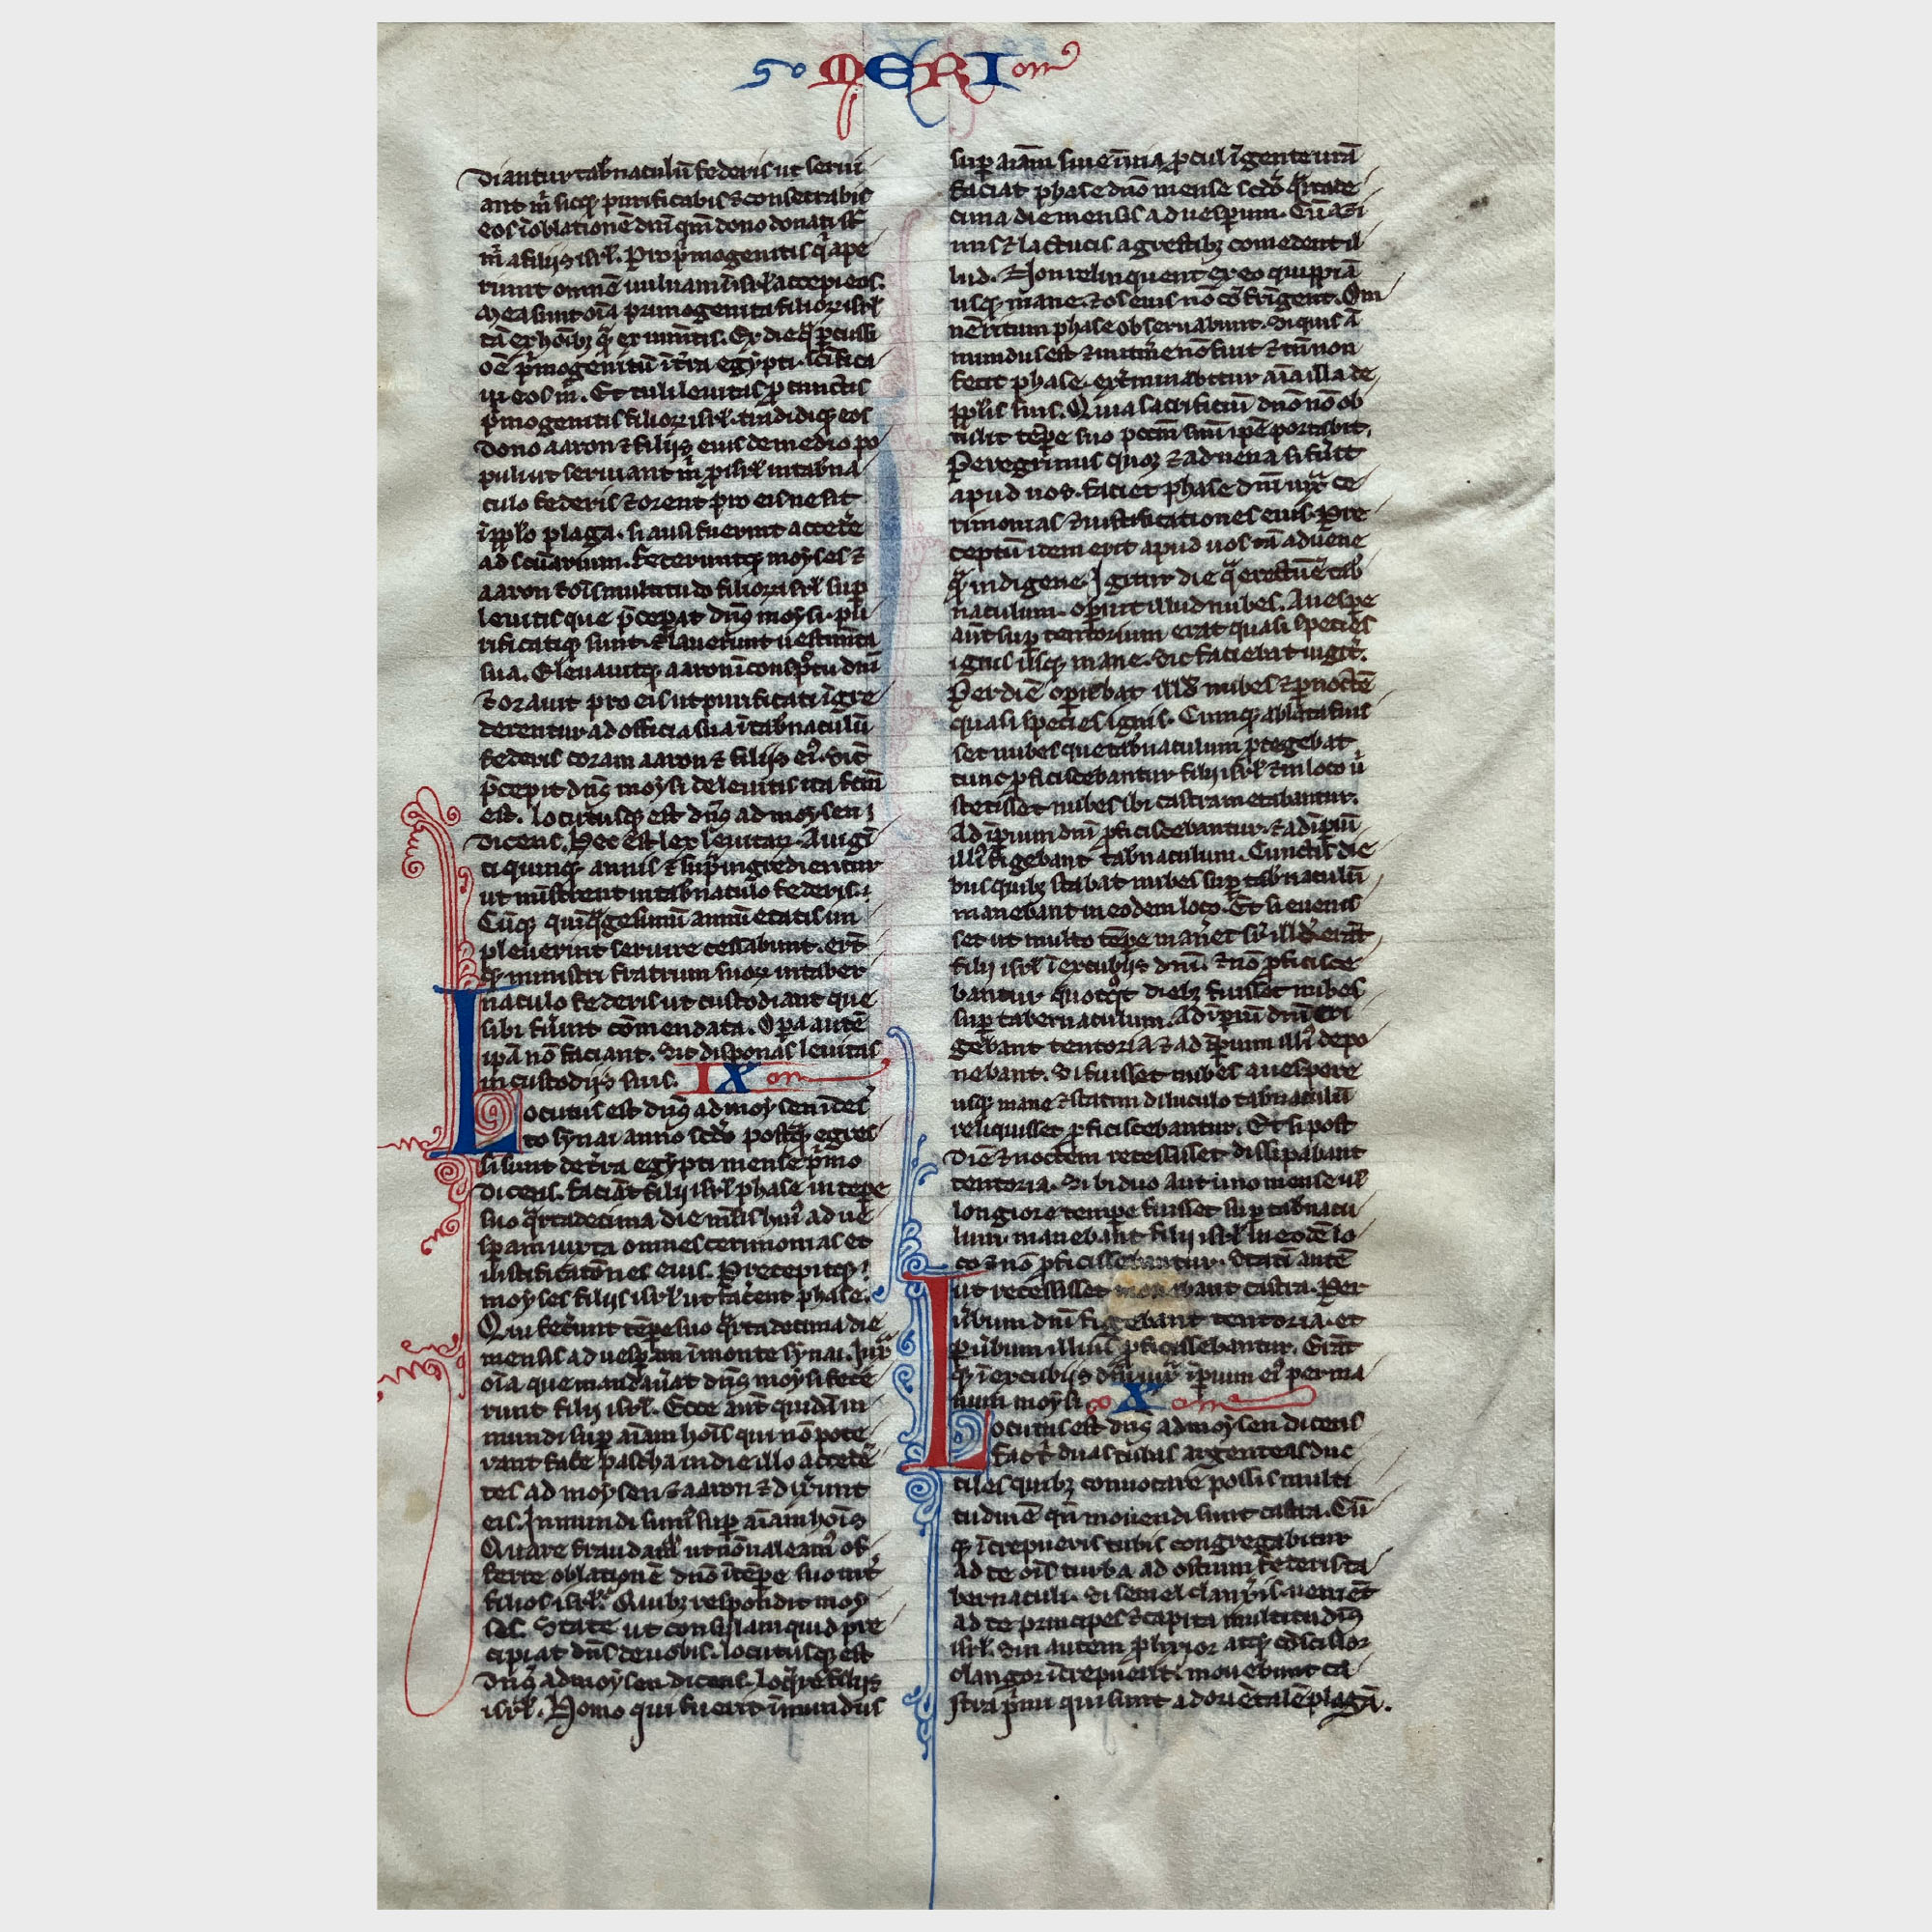 MERI
diantur tab̾naculū federis ut serui
ant m̄ sicq̧ purificabis ⁊ consecrabis
eos ī oblationē dn̄i qm̄ dono donati st̄
m̄ a filijs isrl̄. Pro p̾mogenitis q̄ ape
riunt omnē uuluam ī isrl̄ accepi eos.
Mea sunt oīa primogenita filioꝝ isrl̄
tā ex hoīb; q̄ ex iumētis. Ex die q̊ p̄cussi
oē p̾mogenitū ī t̾ra egypti. sc̄ifica
ui eos m̄. Et tuli leuitas p̱ cunctis
p̾mogenitis filioꝝ isrl̄. tradidiq̧ eos
dono aaron ⁊ filijs eius de medio po
puli ut seruiant m̄ p̱ isrl̄ in tab̾na
culo federis ⁊ orent pro eis ne sit
ī pp̄lo plaga. si ausi fuerint acced̾e
ad sc̄uarium. Feceruntq̧ moyses ⁊
aaron ⁊ oīs multitudo filioꝝ isrl̄ sup̱
leuitis que p̄cep̱at dn̄s moysi. pu
rificatiq̧ sunt. ⁊ lauerunt uestimēta
sua. Eleuauitq̧ aaron ī conspectu dn̄i
⁊ orauit pro eis ut purificati īgre
derentur ad officia sua ī tab̾naculū
federis coram aaron ⁊ filijs ei᷒. Sic̄
p̄cepit dn̄s moysi de leuitis ita fc̄m̄
est. Locutusq̧ est dn̄s ad moysen
dicens. Hec est lex leuitaꝝ. A uigī
ti quinq̧ annis ⁊ sup̾ ingredientur
ut ministrent in tab̾naculo federis.
Cūq̧ quīq̊gesimū annū etatis im
pleuerint seruire cessabunt. erūt
q̧ ministri fratrum suoꝝ in taber
naculo federis ut custodiant que
sibi fuerint cōmendata. Op̱a autē
ip̄a nō faciant. Sic disponas leuitas
in custodijs suis. IX
Locutus est dn̄s ad moysen ī des̾
to synai anno sc̄do postq̄ egres
si sunt de t̾ra egypti mense p̾mo
dicens. faciāt filij isrl̄ phase in tēpe
suo q̊rtadecima die m̄sis hui᷒ ad ues
p̱am iuxta omnes cerimonias et
iustificatōnes eius. Precepitq̧
moyses filijs isrl̄ ut fac̾ent phase.
Qui fec̾unt tēpe suo q̊rtadecima die
mensis ad uesp̱am ī monte synai. Iux̄
oīa que mandau̾at dn̄s moysi fece
runt filij isrl̄. Ecce aut̄ quidā in
mundi sup̱ aīam hoīs qui nō pote
rant fac̾e pascha in die illo acced̾e
tes ad moysen ⁊ aaron ⁊ dix̾unt
eis. Inmundi sum᷒ sup̱ aīam hoīs
Quare fraudam᷒ ut nō ualeam᷒ of
ferre oblationē dn̄o ī tēpe suo int̾
filios isrl̄. Quib; respondit moy
ses. State ut consulam quid pre
cipiat dn̄s de uobis. Locutusq̧ est
dn̄s ad moysen dicens. Loq̾re filijs
isrl̄. Homo qui fuerit īmundus
sup̱ aīam siue ī uia p̱cul ī gente urā
faciat phase dn̄o mense sc̄do q̊rtade
cima die mensis ad uesp̱um. Cū azi
mis ⁊ lactucis agrestib; comedent il
lud. Non relinquent ex eo quippiā
usq̧ mane. ⁊ os eius nō cōfrīgent. Om
nē ritum phase obseruabunt. Si quis aū
mundus est ⁊ in itin̾e nō fuit ⁊ tn̄ non
fecit phase. ext̾minabitur aīa illa de
pp̄lis suis. Quia sacrificiū dn̄o nō ob
tulit tēpe suo pcc̄m suū ip̄e portabit.
Peregrinus quoq̧ ⁊ aduena si fu̾it
apud uos. faciet phase dn̄i iux̄ ce
rimonias ⁊ iustificationes eius. Pre
ceptū idem erit apud uos tā aduene
q̄ indigene. Igitur die q̊ erectū ē tab̾
naculum. op̱uit illud nubes. A uespe
aūt sup̱ tentorium erat quasi species
ignis usq̧ mane. Sic fiebat iugit̾.
Per diē op̱iebat illd̾ nubes ⁊ p̱ noctē
quasi species ignis. Cumq̧ ablata fuis
set nubes que tab̾naculum p̱tegebat
tunc p̱ficiscebantur filij isrl̄ ⁊ in loco u̾
stetisset nubes ibi castrametabantur.
Ad īp̱ium dn̄i p̱ficiscebantur. ⁊ ad īp̱iū
illi᷒ figebant tab̾naculum. Cunctis die
bus quib; stabat nubes sup̱ tab̾naculū
manebant in eodem loco. Et si euenis
set ut multo tēpe man̾et sup̱ illd̾ erāt
filij isrl̄ ī excubijs dn̄i. ⁊ nō p̱ficisce
bantur quotq̊t dieb; fuisset nubes
sup̱ tabernaculum. Ad īp̱iū dn̄i eri
gebant tentoria ⁊ ad īp̱ium illi᷒ depo
nebant. Si fuisset nubes a uespere
usq̧ mane ⁊ statim diluculo tab̾naculū
reliquisset p̱ficiscebantur. Et si post
diē ⁊ noctem recessisset dissipabant
tentoria. Si biduo aut uno mense ul̄
longiore tempe fuisset sup̱ tab̾nacu
lum. manebant filij isrl̄ in eodē lo
co ⁊ nō p̱ficiscebantur. Statī autē
ut recessisset mouebant castra. Per
u̾bum dn̄i figebant tentoria. et
p̱ u̾bum illius p̱ficiscebantur. Erāt
q̧ ī excubijs dn̄i iux̄ īp̱ium ei᷒ p̱ ma
num moysi X
Locutus est dn̄s ad moysen dicens
Fac t̾ duas tubas argenteas duc
tiles quib; conuocare possis multi
tudinē qn̄ mouenda sunt castra. Cū
q̧ īcrepueris tubis congregabitur
ad te oīs turba ad ostium federis ta
bernaculi. Si semel clanx̾is. uenient
ad te principes ⁊ capita multitudinis
isrl̄. Sin autem p̱lixior atq̧ cōcisior
clangor īcrepuerit. mouebunt ca
stra p̾mi qui sunt ad oriētalē plagā.